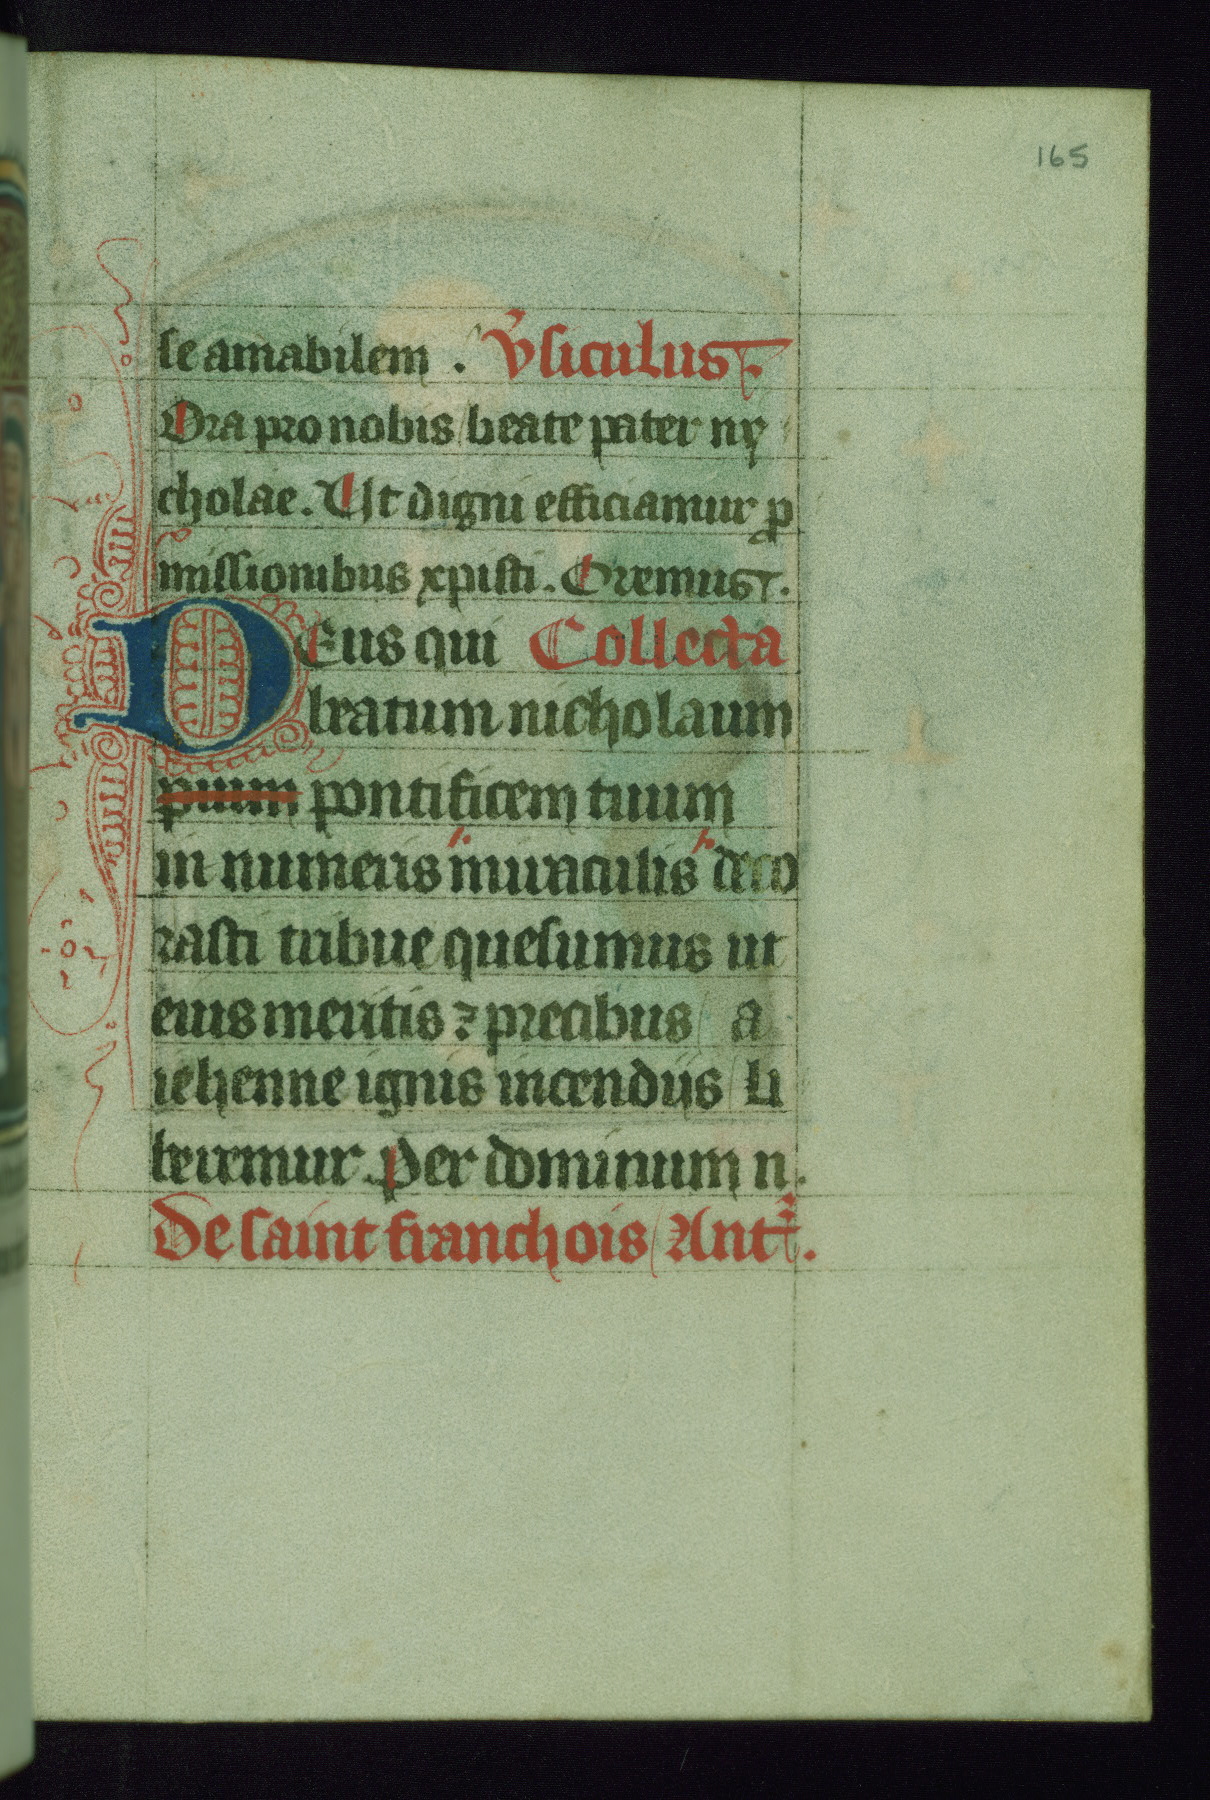 165
se amabilem . v̉siculus.
Ora pro nobis beate pater ny
cholae. Ut digni efficiamur ꝓ
missionibus xpisti. Oremus.
DEus qui Collecta
beatum nicholaum
puum pontificem tuum
in numeris miraculis deco
rasti tribue quesumus ut
eius meritis ⁊ precibus a
iehenne ignis incendiis li
beremur. Per dominum n.
De saint franchois Ant̉.